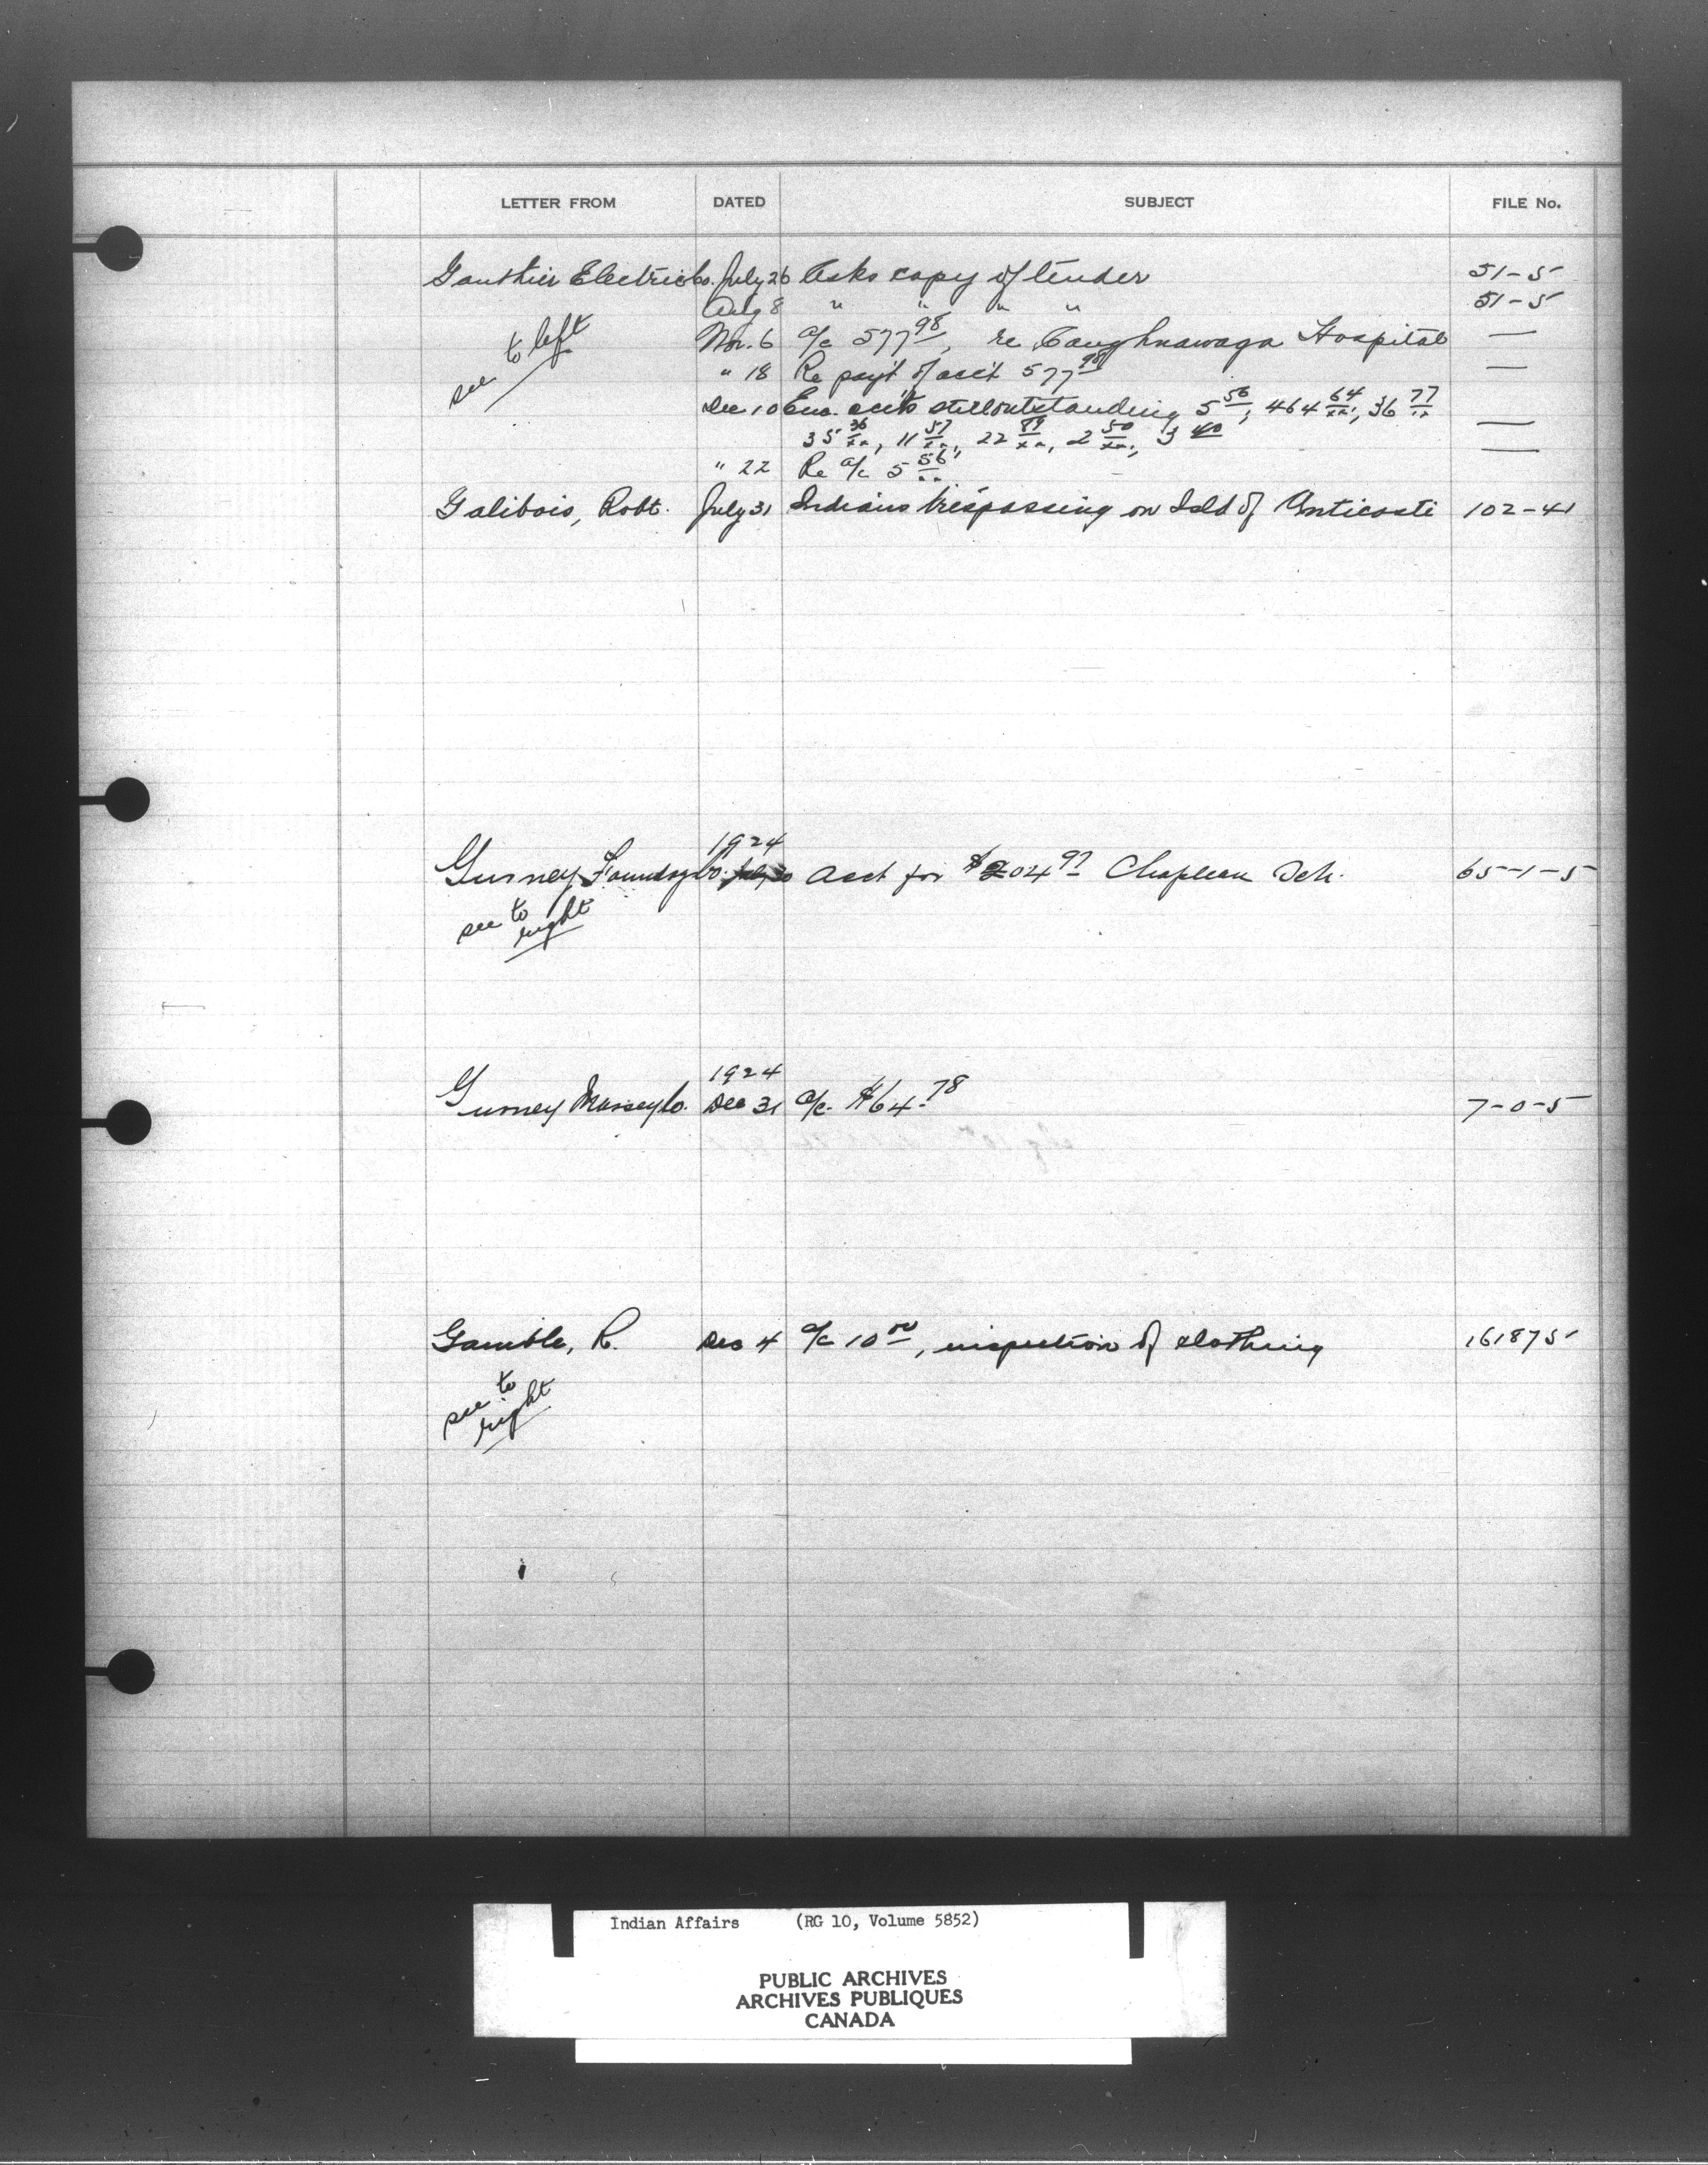 LETTER FROM DATED SUBJECT FILE No.
Gauthier Electric Co. July 26 Asks copy of tender 51-5
Aug 8 " " " " 51-5
see to left
Nov. 6 a/c 577 98, re Caughnawaga Hospital —
" 18 Re pay't of acc't 577 98 —
Dec 10 Enc. accts still outstanding 5 56/xx, 464 64/xx, 36 77/xx —
35 36/xx, 11 57/xx, 22 89/xx, 2 50/xx, 3 40
" 22 Re a/c 5 56/xx —
Galibois, Robt. July 31 Indians trespassing on Isld of Anticosti 102-41
1924
Gurney Foundry Co. July 30 Acct for $204 97 Chapleau Sch. 65-1-5
see to
right
1924
Gurney Massey Co. Dec 31 a/c. $64.78 7-0-5
Gamble, R. Dec 4 a/c 10 00, inspection of clothing 161875
see to
right
Indian Affairs (RG 10, Volume 5852)
PUBLIC ARCHIVES
ARCHIVES PUBLIQUES
CANADA